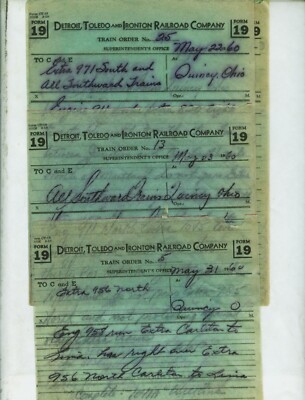 FORM
19
DETROIT, TOLEDO AND IRONTON RAILROAD COMPANY
FORM
19
TRAIN ORDER No. 25
SUPERINTENDENT'S OFFICE May 22-60
To C and E
Extra 971 South and
Quincy, Ohio
All Southward Trains
FORM
19
DETROIT, TOLEDO AND IRONTON RAILROAD COMPANY
FORM
19
TRAIN ORDER No. 13
SUPERINTENDENT'S OFFICE May
To C and E
All Southward Trains Quincy Ohio
FORM
19
DETROIT, TOLEDO AND IRONTON RAILROAD COMPANY
FORM
19
TRAIN ORDER No. 5
SUPERINTENDENT'S OFFICE May 31-60
To C and E
Extra 956 North
Quincy O
Eng 956 run Extra Carleton to
Lima has right over Extra
956 North Carleton to Lima
Complete